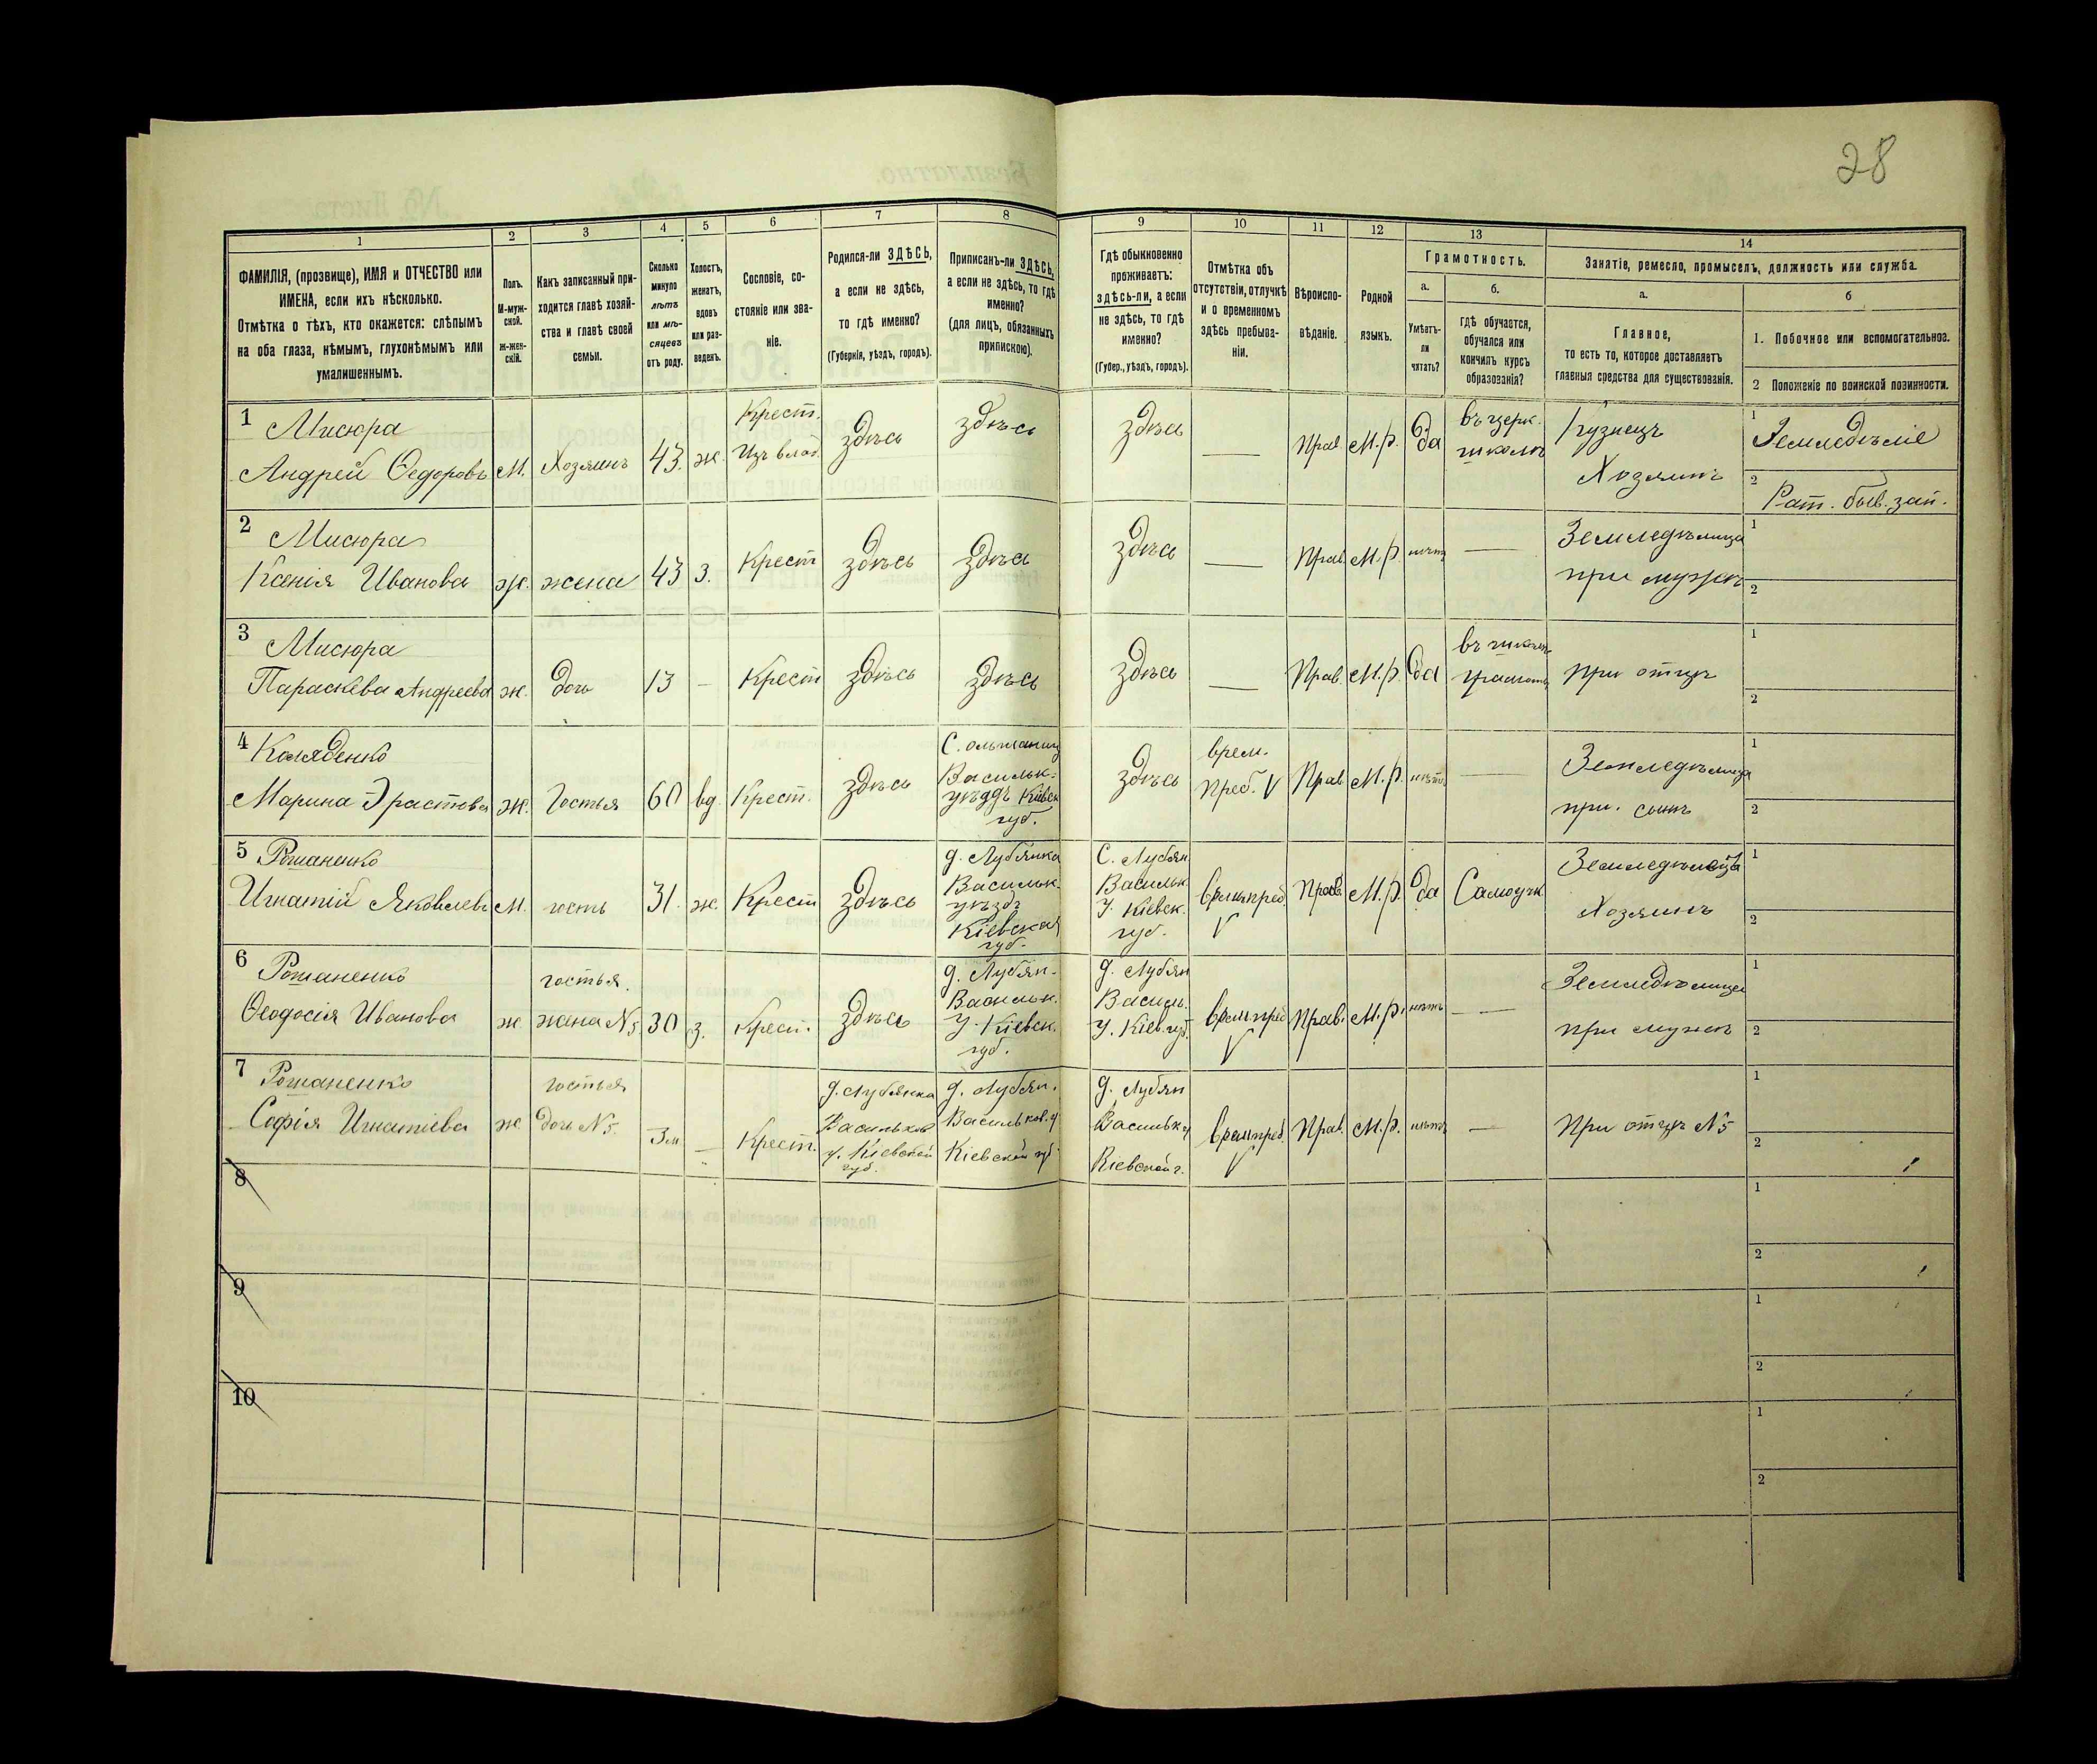 28
1
2
3
4
5
6
7
8
9
10
11
12
13
14
ФАМИЛІЯ, (прозвище), ИМЯ и ОТЧЕСТВО или
ИМЕНА, если ихъ нѣсколько.
Отмѣтка о тѣхъ, кто окажется: слѣпымъ
на оба глаза, нѣмымъ, глухонѣмымъ или
умалишеннымъ.
Полъ.
М-муж-
ской.
Ж-жен-
скій.
Какъ записанный при-
ходится главѣ хозяй-
ства и главѣ своей
семьи.
Сколько
минуло
лѣтъ
или мѣ-
сяцевъ
отъ роду.
Холостъ,
женатъ,
вдовъ
или раз-
веденъ.
Сословіе, со-
стояніе или зва-
ніе.
Родился-ли ЗДѢСЬ,
а если не здѣсь,
то гдѣ именно?
(Губернія, уѣздъ, городъ).
Приписанъ-ли ЗДѢСЬ,
а если не здѣсь, то гдѣ
именно?
(для лицъ, обязанныхъ
припискою).
Гдѣ обыкновенно
проживаетъ:
здѣсь-ли, а если
не здѣсь, то гдѣ
именно?
(Губер., уѣздъ, городъ).
Отмѣтка объ
отсутствіи, отлучкѣ
и о временномъ
здѣсь пребыва-
ніи.
Вѣроиспо-
вѣданіе.
Родной
языкъ.
Грамотность.
а.
Умѣетъ-
ли
читать?
б.
гдѣ обучается,
обучался или
кончилъ курсъ
образованія?
Занятіе, ремесло, промыселъ, должность или служба.
а.
Главное,
то есть то, которое доставляетъ
главныя средства для существованія.
б
1. Побочное или вспомогательное.
2 Положеніе по воинской повинности.
1 Мисюра
Андрей Ѳедоровъ
М.
Хозяинъ
43.
ж.
Крест.
Изъ влад.
здѣсь
здѣсь
здѣсь
—
Прав
М.р.
да
въ церк.
школѣ
Кузнецъ
Хозяинъ
1
Земледѣліе
2
Рат. быв. зап.
2 Мисюра
Ксенія Иванова
ж.
жена
43
з.
Крест
здѣсь
здѣсь
здѣсь
—
Прав.
М.р.
нѣтъ
—
Земледѣлица
при мужѣ
1
2
3 Мисюра
Параскева Андреева
ж.
дочь
13
—
Крест
здѣсь
здѣсь
здѣсь
—
Прав.
М.р.
да
въ школѣ
грамоты
при отцѣ
1
2
4 Коляденко
Марина Эрастова
ж.
Гостья
60
вд.
Крест.
здѣсь
С.
Васильк.
уѣздъ Кіевск
губ.
здѣсь
врем.
Преб. V
Прав
М.р.
нѣтъ
—
Земледѣлица
при. сынѣ
1
2
5 Романенко
Игнатій Яковлевъ
М.
гость
31.
ж.
Крест
здѣсь
д. Лубянка
Васильк.
уѣздъ
Кіевская
губ.
С. Лубян
Васильк.
у. Кіевск.
губ.
времпреб.
V
Прав.
М.р.
да
Самоучк
Хозяинъ
1
2
6 Романенко
Ѳеодосія Иванова
ж
гостья.
жена N5
30
з.
Крест.
здѣсь
д. Лубян.
Васильк.
у. Кіевск.
губ.
д. Лубян
Василь.
у. Кіев. губ.
времпреб
V
Прав.
М.р.
нѣтъ
—
Земледѣлица
при мужѣ
1
2
7 Романенко
Софія Игнатіева
ж.
гостья
дочь N5.
3м
—
Крест.
д. Лубянка
Васильков
у. Кіевской
губ.
д. Лубян.
Васильков. у
Кіевской губ
д. Лубян
Васильк у
Кіевской г.
времпреб.
V
Прав.
М.р.
нѣтъ
—
При отцѣ N5
1
2
8
1
2
9
1
2
10
1
2